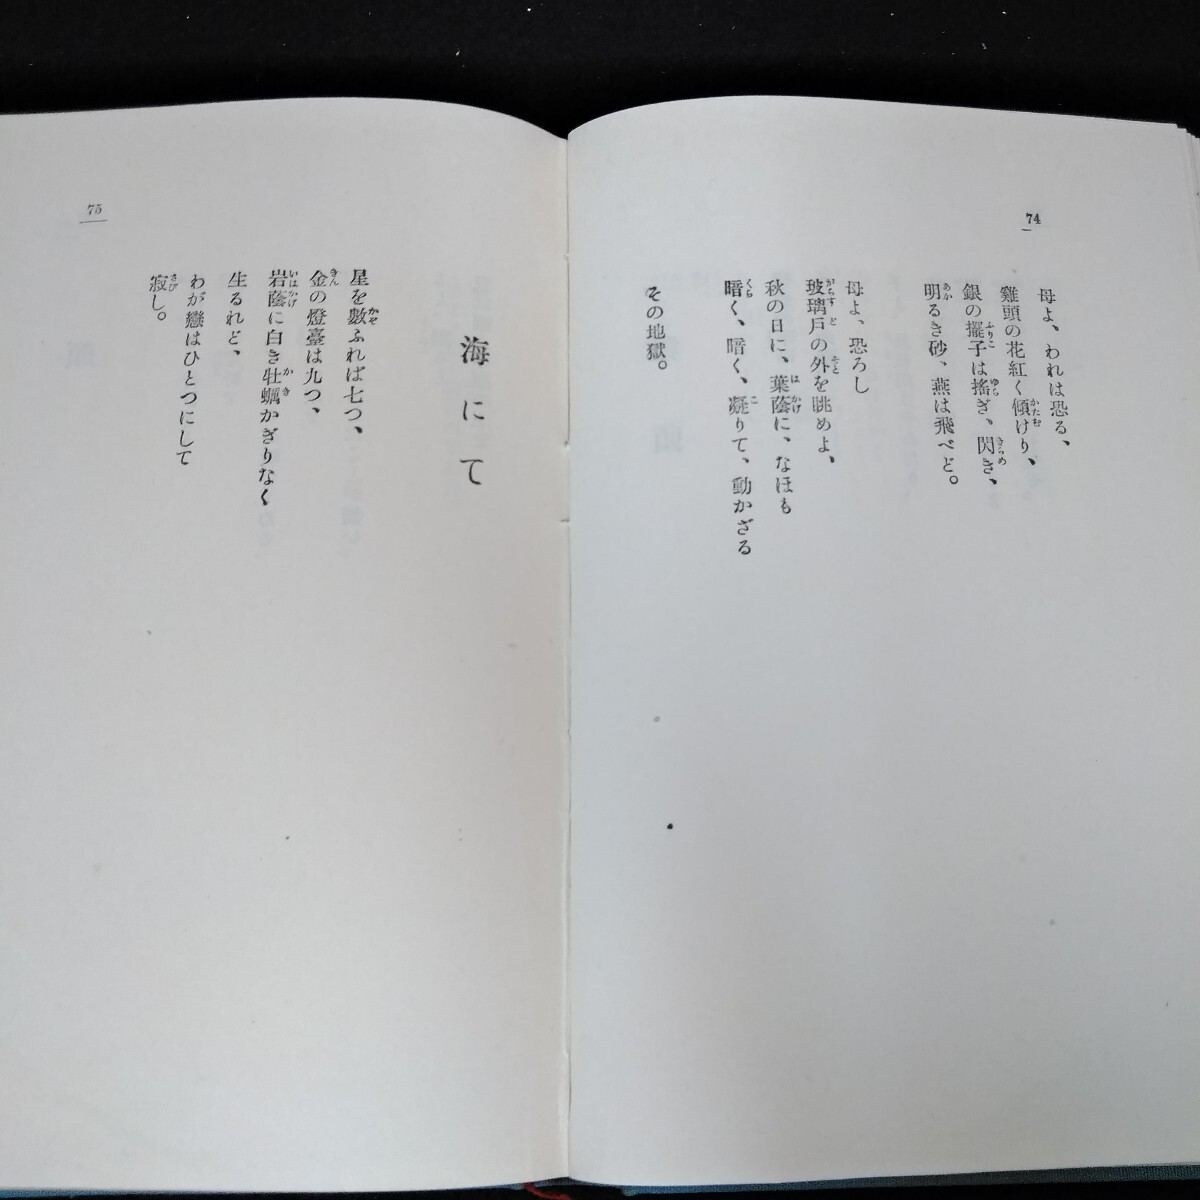 74
母よ、われは恐る、
雞頭の花紅く傾けり、
銀の擺子は搖ぎ、閃き、
明るき砂、燕は飛べど。
母よ、恐ろし
玻璃戸の外を眺めよ、
秋の日に、葉蔭に、なほも
暗く、暗く、凝りて、動かざる
その地獄。
75
海にて
星を數ふれば七つ、
金の燈臺は九つ、
岩蔭に白き牡蠣かぎりなく
生るれど、
わが戀はひとつにして
寂し。